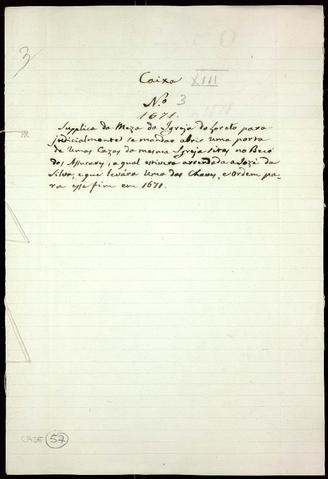 3
Caixa XIII
N.º 3
1671.
Supplica da Meza da Igreja do Loreto para
judicialmente se mandar abrir uma porta
de umas Cazas da mesma Igreja sitas no Beco
dos Assucares, a qual estivera arrendada a Jozé da
Silva, e que levára uma das Chaves, e Ordem pa-
ra esse fim em 1671.
57